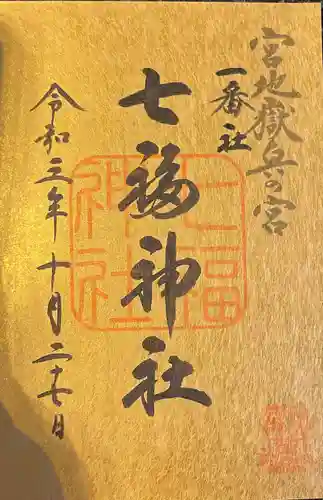 宮地嶽兵の宮
一番社
七福神社
七福
神社
令和三年十月二十七日